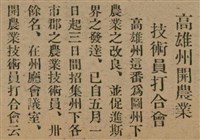 高雄州開農業
技術員打合會
高雄州這番為圖州下
農業之改良、並促進斯
界之發達、已自五月一
日起三日間招集州下各
市郡之農業技術員、卅
餘名、在州廳會議室、
開農業技術員打合會云